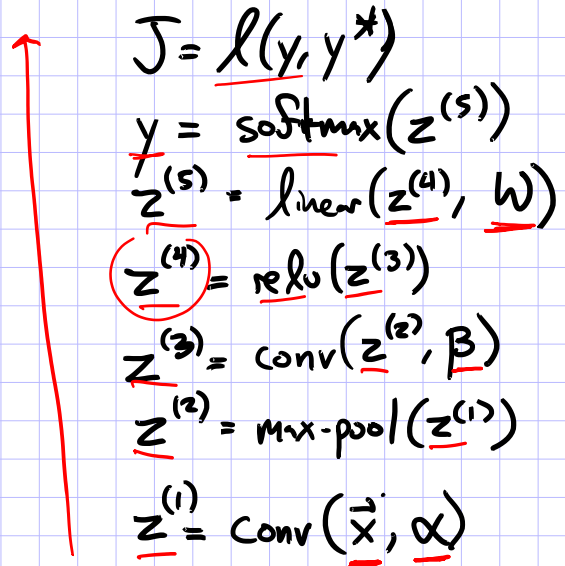 J = l(y, y*)
y = softmax(z^(5))
z^(5) = linear(z^(4), W)
z^(4) = relu(z^(3))
z^(3) = conv(z^(2), β)
z^(2) = max-pool(z^(1))
z^(1) = conv(x⃗, α)